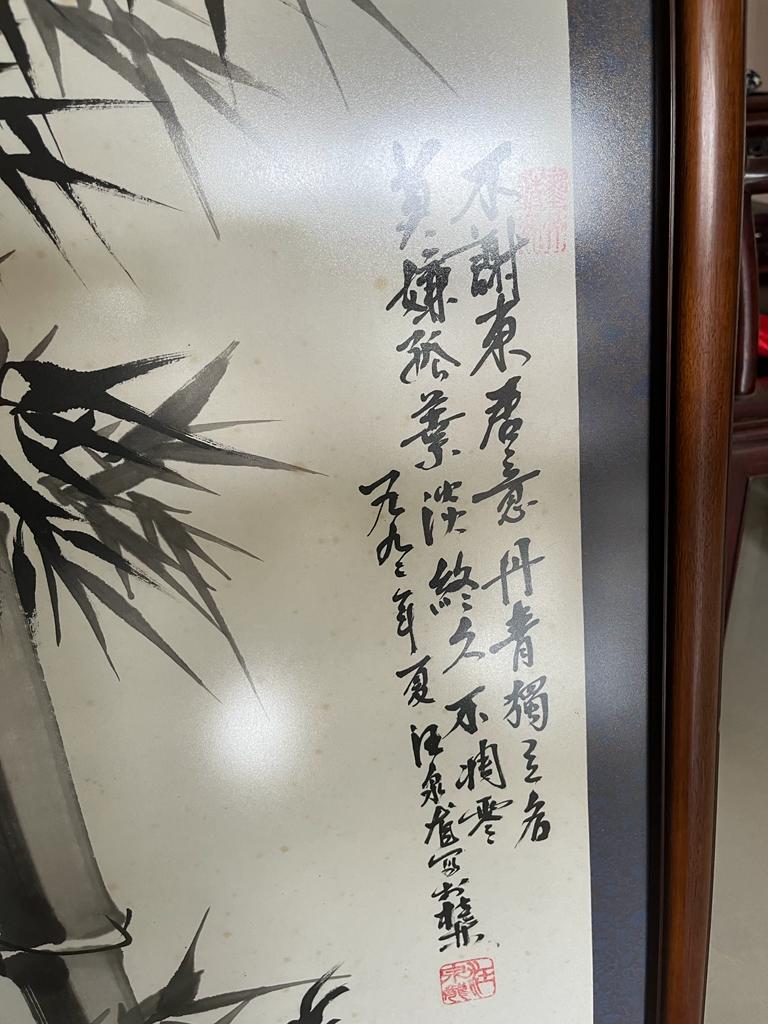 不謝東君意丹青獨立名
莫嫌孤葉淡終久不凋零
一九九二年夏汪泉龙写於